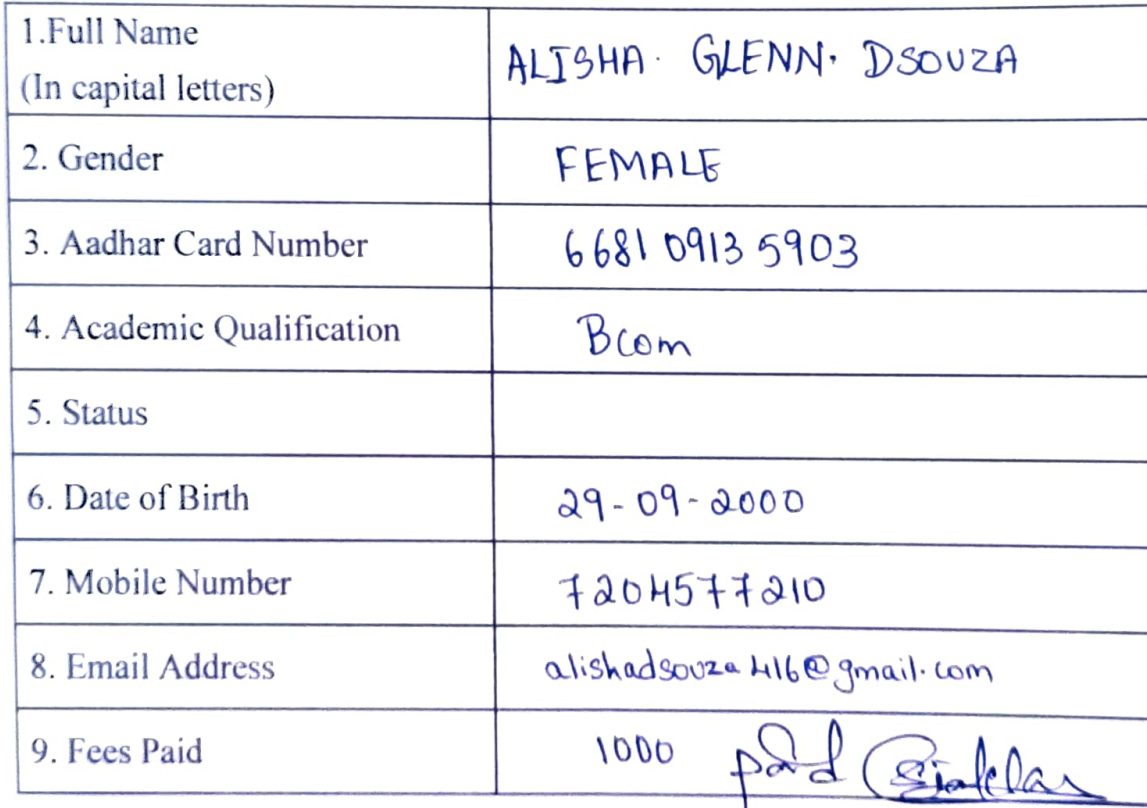 1.Full Name
(In capital letters)
ALISHA. GLENN. DSOUZA
2. Gender
FEMALE
3. Aadhar Card Number
6681 0913 5903
4. Academic Qualification
Bcom
5. Status
6. Date of Birth
29-09-2000
7. Mobile Number
7204577210
8. Email Address
alishadsouza416@gmail.com
9. Fees Paid
1000 paid